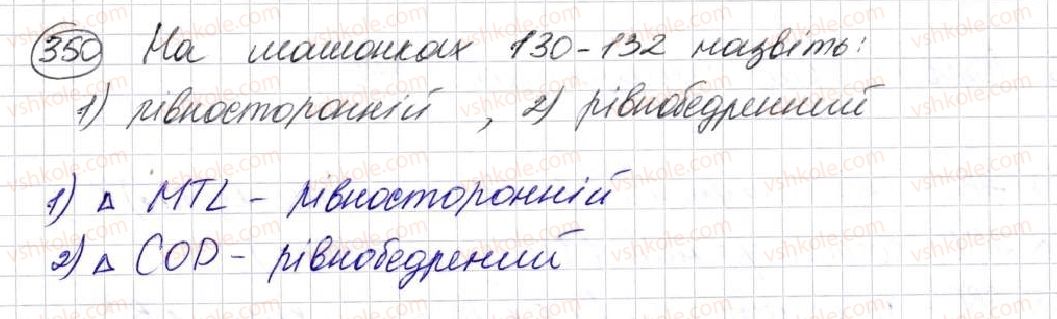 350 На малюнках 130-132 назвіть:
1) рівносторонній , 2) рівнобедренний
1) Δ MTL - рівносторонній
2) Δ COD - рівнобедрений